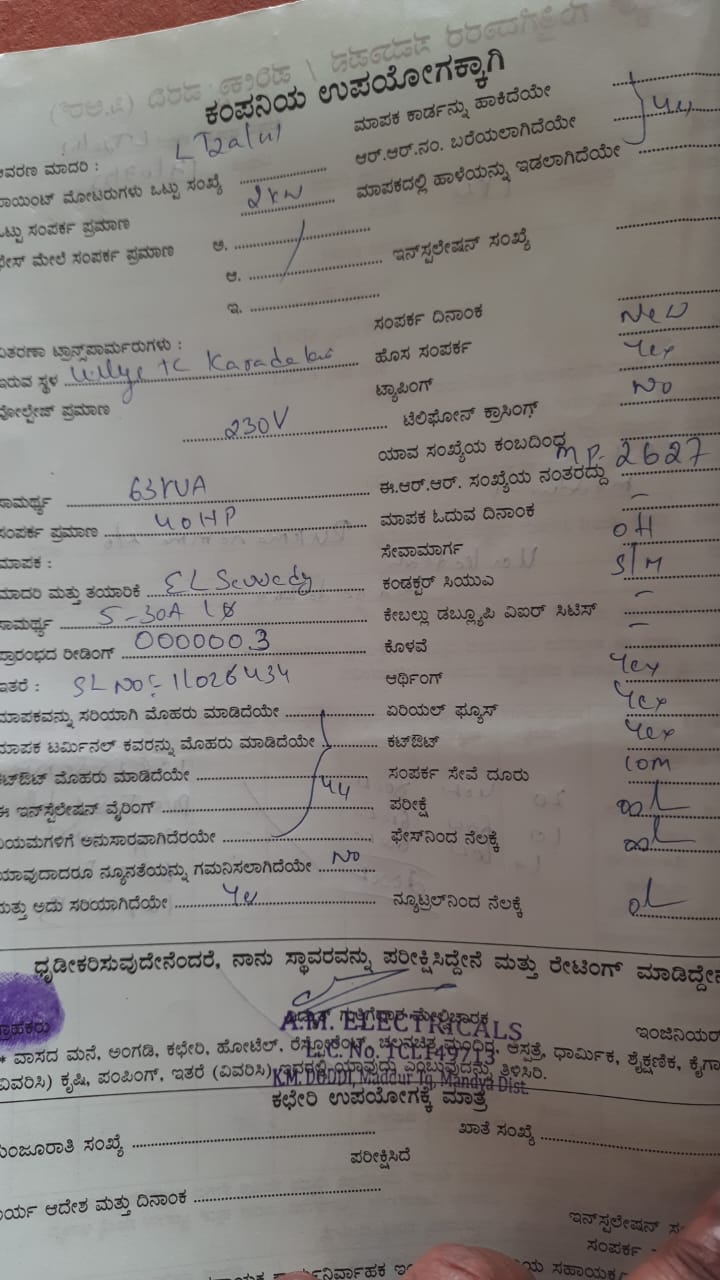 ಕಂಪನಿಯ ಉಪಯೋಗಕ್ಕಾಗಿ
ಮಾಪಕ ಕಾರ್ಡನ್ನು ಹಾಕಿದೆಯೇ
ಆವರಣ ಮಾದರಿ :
ಆರ್.ಆರ್.ನಂ. ಬರೆಯಲಾಗಿದೆಯೇ
ಪಾಯಿಂಟ್ ಮೋಟರುಗಳು ಒಟ್ಟು ಸಂಖ್ಯೆ
ಮಾಪಕದಲ್ಲಿ ಹಾಳೆಯನ್ನು ಇಡಲಾಗಿದೆಯೇ
ಒಟ್ಟು ಸಂಪರ್ಕ ಪ್ರಮಾಣ 2KW
ಫೇಸ್ ಮೇಲೆ ಸಂಪರ್ಕ ಪ್ರಮಾಣ ಅ.
ಆ. ಇನ್‌ಸ್ಪಲೇಷನ್ ಸಂಖ್ಯೆ
ಇ.
ಸಂಪರ್ಕ ದಿನಾಂಕ New
ವಿತರಣಾ ಟ್ರಾನ್ಸ್‌ಪಾರ್ಮರುಗಳು :
ಇರುವ ಸ್ಥಳ ಹೊಸ ಸಂಪರ್ಕ Yes
ವೋಲ್ಟೇಜ್ ಪ್ರಮಾಣ 230V ಟ್ಯಾಪಿಂಗ್ No
ಟೆಲಿಫೋನ್ ಕ್ರಾಸಿಂಗ್
ಯಾವ ಸಂಖ್ಯೆಯ ಕಂಬದಿಂದ
ಸಾಮರ್ಥ್ಯ 63KVA ಈ.ಆರ್.ಆರ್. ಸಂಖ್ಯೆಯ ನಂತರದ್ದು MP-2627
ಸಂಪರ್ಕ ಪ್ರಮಾಣ 40HP ಮಾಪಕ ಓದುವ ದಿನಾಂಕ -
ಮಾಪಕ : ಸೇವಾಮಾರ್ಗ OH
ಮಾದರಿ ಮತ್ತು ತಯಾರಿಕೆ EL Sewedy ಕಂಡಕ್ಟರ್ ಸಿಯುವಿ
ಸಾಮರ್ಥ್ಯ 5-30A 1Ø ಕೇಬಲ್ಲು ಡಬ್ಲ್ಯೂಪಿ ವಿಐರ್ ಸಿಟಿಸ್ -
ಪ್ರಾರಂಭದ ರೀಡಿಂಗ್ 000000.3 ಕೊಳವೆ -
ಇತರೆ : SL NO: 11026434 ಆರ್ಥಿಂಗ್ Yes
ಮಾಪಕವನ್ನು ಸರಿಯಾಗಿ ಮೊಹರು ಮಾಡಿದೆಯೇ ಏರಿಯಲ್ ಫ್ಯೂಸ್ Yes
ಮಾಪಕ ಟರ್ಮಿನಲ್ ಕವರನ್ನು ಮೊಹರು ಮಾಡಿದೆಯೇ ಕಟ್‌ಔಟ್ Yes
ಕಟ್‌ಔಟ್ ಮೊಹರು ಮಾಡಿದೆಯೇ ಸಂಪರ್ಕ ಸೇವೆ ದೂರು 10M
ಈ ಇನ್‌ಸ್ಪೆಲೇಷನ್ ವೈರಿಂಗ್ ಪರೀಕ್ಷೆ
ನಿಯಮಗಳಿಗೆ ಅನುಸಾರವಾಗಿದೆರಯೇ ಫೇಸ್‌ನಿಂದ ನೆಲಕ್ಕೆ
ಯಾವುದಾದರೂ ನ್ಯೂನತೆಯನ್ನು ಗಮನಿಸಲಾಗಿದೆಯೇ No
ಮತ್ತು ಅದು ಸರಿಯಾಗಿದೆಯೇ Yes ನ್ಯೂಟ್ರಲ್‌ನಿಂದ ನೆಲಕ್ಕೆ
ಧೃಡೀಕರಿಸುವುದೇನೆಂದರೆ, ನಾನು ಸ್ಥಾವರವನ್ನು ಪರೀಕ್ಷಿಸಿದ್ದೇನೆ ಮತ್ತು ರೇಟಿಂಗ್ ಮಾಡಿದ್ದೇನೆ
ಗ್ರಾಹಕರು ಗುತ್ತಿಗೆದಾರ ಮೇಲ್ವಿಚಾರಕ ಇಂಜಿನಿಯರ್
A.M. ELECTRICALS
* ವಾಸದ ಮನೆ, ಅಂಗಡಿ, ಕಛೇರಿ, ಹೋಟೆಲ್, ರೆಸ್ಟೋರೆಂಟ್, ಚಲನಚಿತ್ರ ಮಂದಿರ, ಆಸ್ಪತ್ರೆ, ಧಾರ್ಮಿಕ, ಶೈಕ್ಷಣಿಕ, ಕೈಗಾ
LIC. No. TCL149713
(ವಿವರಿಸಿ) ಕೃಷಿ, ಪಂಪಿಂಗ್, ಇತರೆ (ವಿವರಿಸಿ) ಇವುಗಳಲ್ಲಿ ಯಾವುದು ಎಂಬುವುದನ್ನು ತಿಳಿಸಿರಿ.
K.M. DODDI, Maddur Tq, Mandya Dist.
ಕಛೇರಿ ಉಪಯೋಗಕ್ಕೆ ಮಾತ್ರ
ಮಂಜೂರಾತಿ ಸಂಖ್ಯೆ ಖಾತೆ ಸಂಖ್ಯೆ
ಪರೀಕ್ಷಿಸಿದೆ
ಕಾರ್ಯ ಆದೇಶ ಮತ್ತು ದಿನಾಂಕ
ಇನ್‌ಸ್ಪಲೇಷನ್
ಸಂಪರ್ಕ